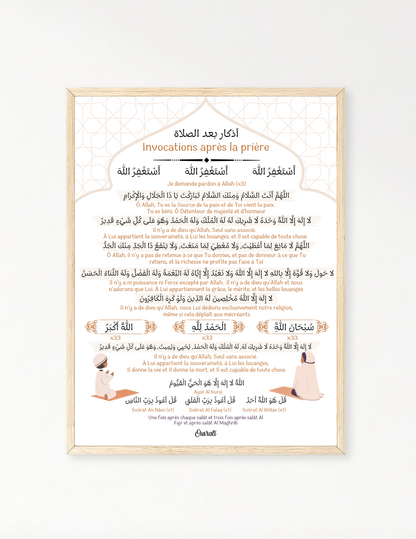 أذكار بعد الصلاة
Invocations après la prière
أَسْتَغْفِرُ اللّٰه أَسْتَغْفِرُ اللّٰه أَسْتَغْفِرُ اللّٰه
Je demande pardon à Allah (x3)
اللَّهُمَّ أَنْتَ السَّلَامُ وَمِنْكَ السَّلَامُ تَبَارَكْتَ يَا ذَا الْجَلَالِ وَالْإِكْرَامِ
Ô Allah, Tu es la Source de la paix et de Toi vient la paix.
Tu es béni, Ô Détenteur de majesté et d'honneur
لَا إِلَهَ إِلَّا اللَّهُ وَحْدَهُ لَا شَرِيكَ لَهُ لَهُ الْمُلْكُ وَلَهُ الْحَمْدُ وَهُوَ عَلَى كُلِّ شَيْءٍ قَدِيرٌ
Il n'y a de dieu qu'Allah, Seul sans associé.
À Lui appartient la souveraineté, à Lui les louanges, et Il est capable de toute chose
اللَّهُمَّ لَا مَانِعَ لِمَا أَعْطَيْتَ، وَلَا مُعْطِيَ لِمَا مَنَعْتَ، وَلَا يَنْفَعُ ذَا الْجَدِّ مِنْكَ الْجَدُّ
Ô Allah, il n'y a pas de retenue à ce que Tu donnes, et pas de donneur à ce que Tu
retiens, et la richesse ne profite pas face à Toi
لَا حَوْلَ وَلَا قُوَّةَ إِلَّا بِاللهِ لَا إِلَهَ إِلَّا اللَّهُ وَلَا نَعْبُدُ إِلَّا إِيَّاهُ لَهُ النِّعْمَةُ وَلَهُ الْفَضْلُ وَلَهُ الثَّنَاءُ الْحَسَنُ
Il n'y a ni puissance ni Force excepté par Allah. Il n'y a de dieu qu'Allah et nous
n'adorons que Lui. À Lui appartiennent la grâce, le mérite, et les belles louanges
لَا إِلَهَ إِلَّا اللَّهُ مُخْلِصِينَ لَهُ الدِّينَ وَلَوْ كَرِهَ الْكَافِرُونَ
Il n'y a de dieu qu'Allah, nous Lui dédions exclusivement notre religion,
même si cela déplaît aux mécréants
اللَّهُ أَكْبَرُ الْحَمْدُ لِلَّهِ سُبْحَانَ اللَّهِ
x33 x33 x33
لَا إِلَهَ إِلَّا اللَّهُ وَحْدَهُ لَا شَرِيكَ لَهُ، لَهُ الْمُلْكُ وَلَهُ الْحَمْدُ، يُحْيِي وَيُمِيتُ، وَهُوَ عَلَى كُلِّ شَيْءٍ قَدِيرٌ
Il n'y a de dieu qu'Allah, Seul sans associé.
À Lui appartient la souveraineté, à Lui les louanges,
Il donne la vie et Il donne la mort, et Il est capable de toute chose
اللَّهُ لَا إِلَهَ إِلَّا هُوَ الْحَيُّ الْقَيُّومُ
Ayat Al Kursi
قُلْ أَعُوذُ بِرَبِّ النَّاسِ قُلْ أَعُوذُ بِرَبِّ الْفَلَقِ قُلْ هُوَ اللَّهُ أَحَدٌ
Sourat An Nâss (x1) Sourat Al Falaq (x1) Sourat Al Ikhlas (x1)
Une fois après chaque salât et trois fois après salât Al
Fajr et après salât Al Maghrib